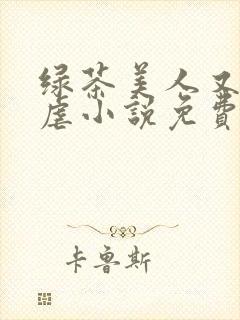 绿茶美人又
虐小説免費
卡鲁斯